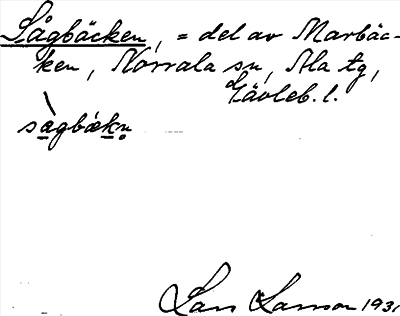 Sågbäcken, = del av Marbäc-
ken, Norrala sn, Ala tg,
Gävleb. l.
sagbäkn
Lars Larsson 1931